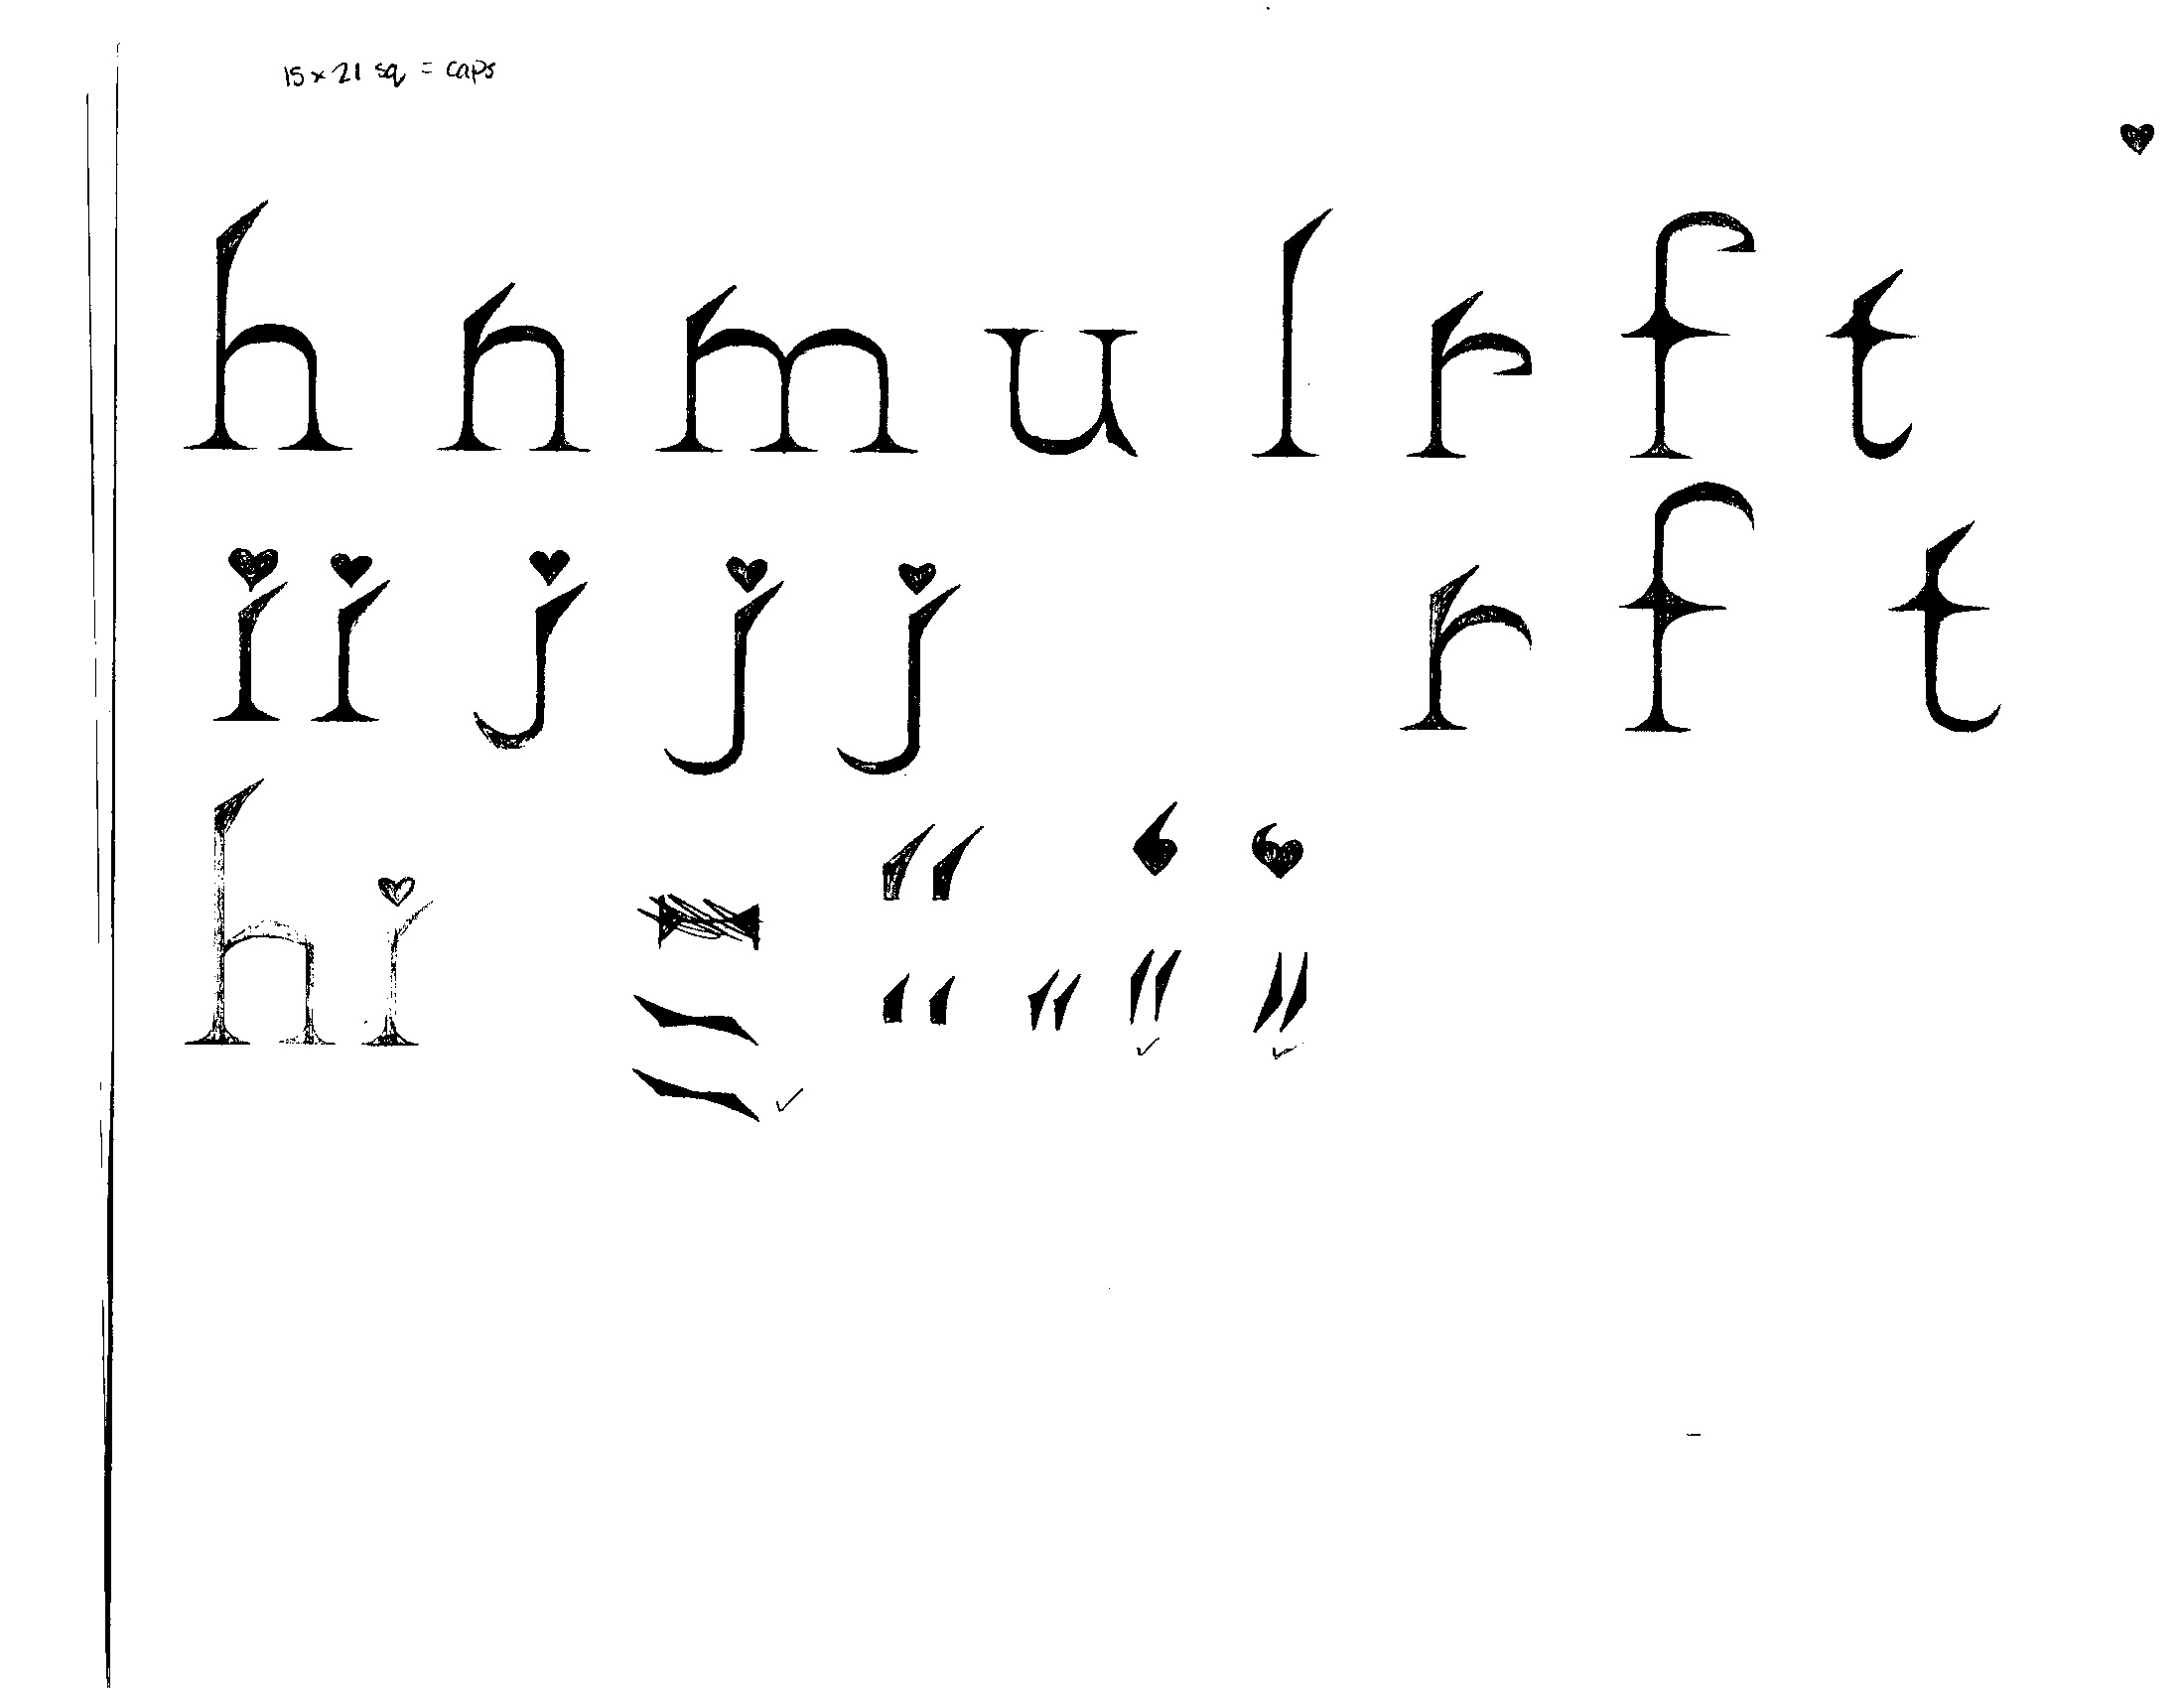 15 x 21 sq = caps
h n m u l r f t
i i j j j r f t
h i “ ‘ ‘
“ “ “ ”